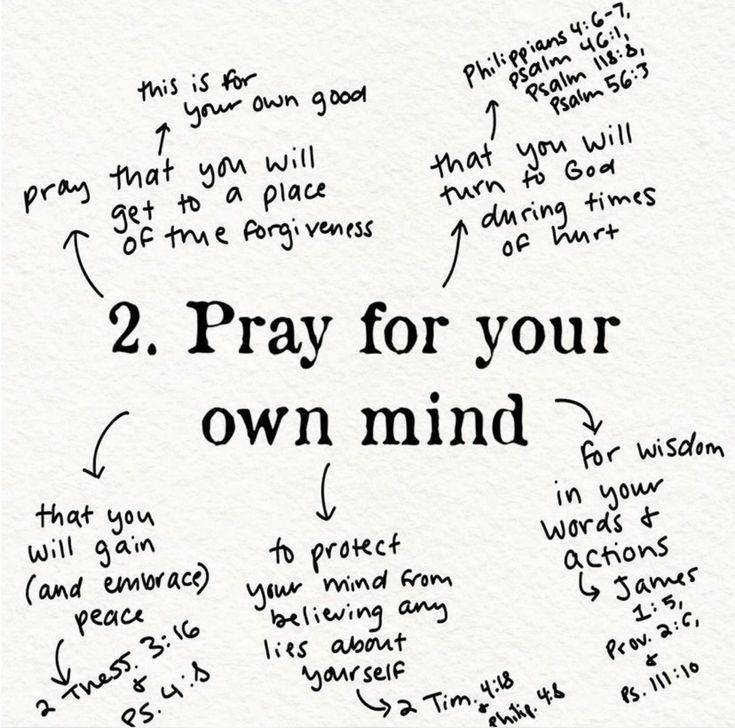 this is for
your own good
pray that you will
get to a place
of true forgiveness
Philippians 4:6-7,
Psalm 46:1,
Psalm 118:8,
Psalm 56:3
that you will
turn to God
during times
of hurt
2. Pray for your
own mind
that you
will gain
(and embrace)
peace
2 Thess. 3:16
&
PS. 4:8
to protect
your mind from
believing any
lies about
yourself
2 Tim. 4:18
& Philip. 4:8
for wisdom
in your
words &
actions
James
1:5,
Prov. 2:6,
&
Ps. 111:10